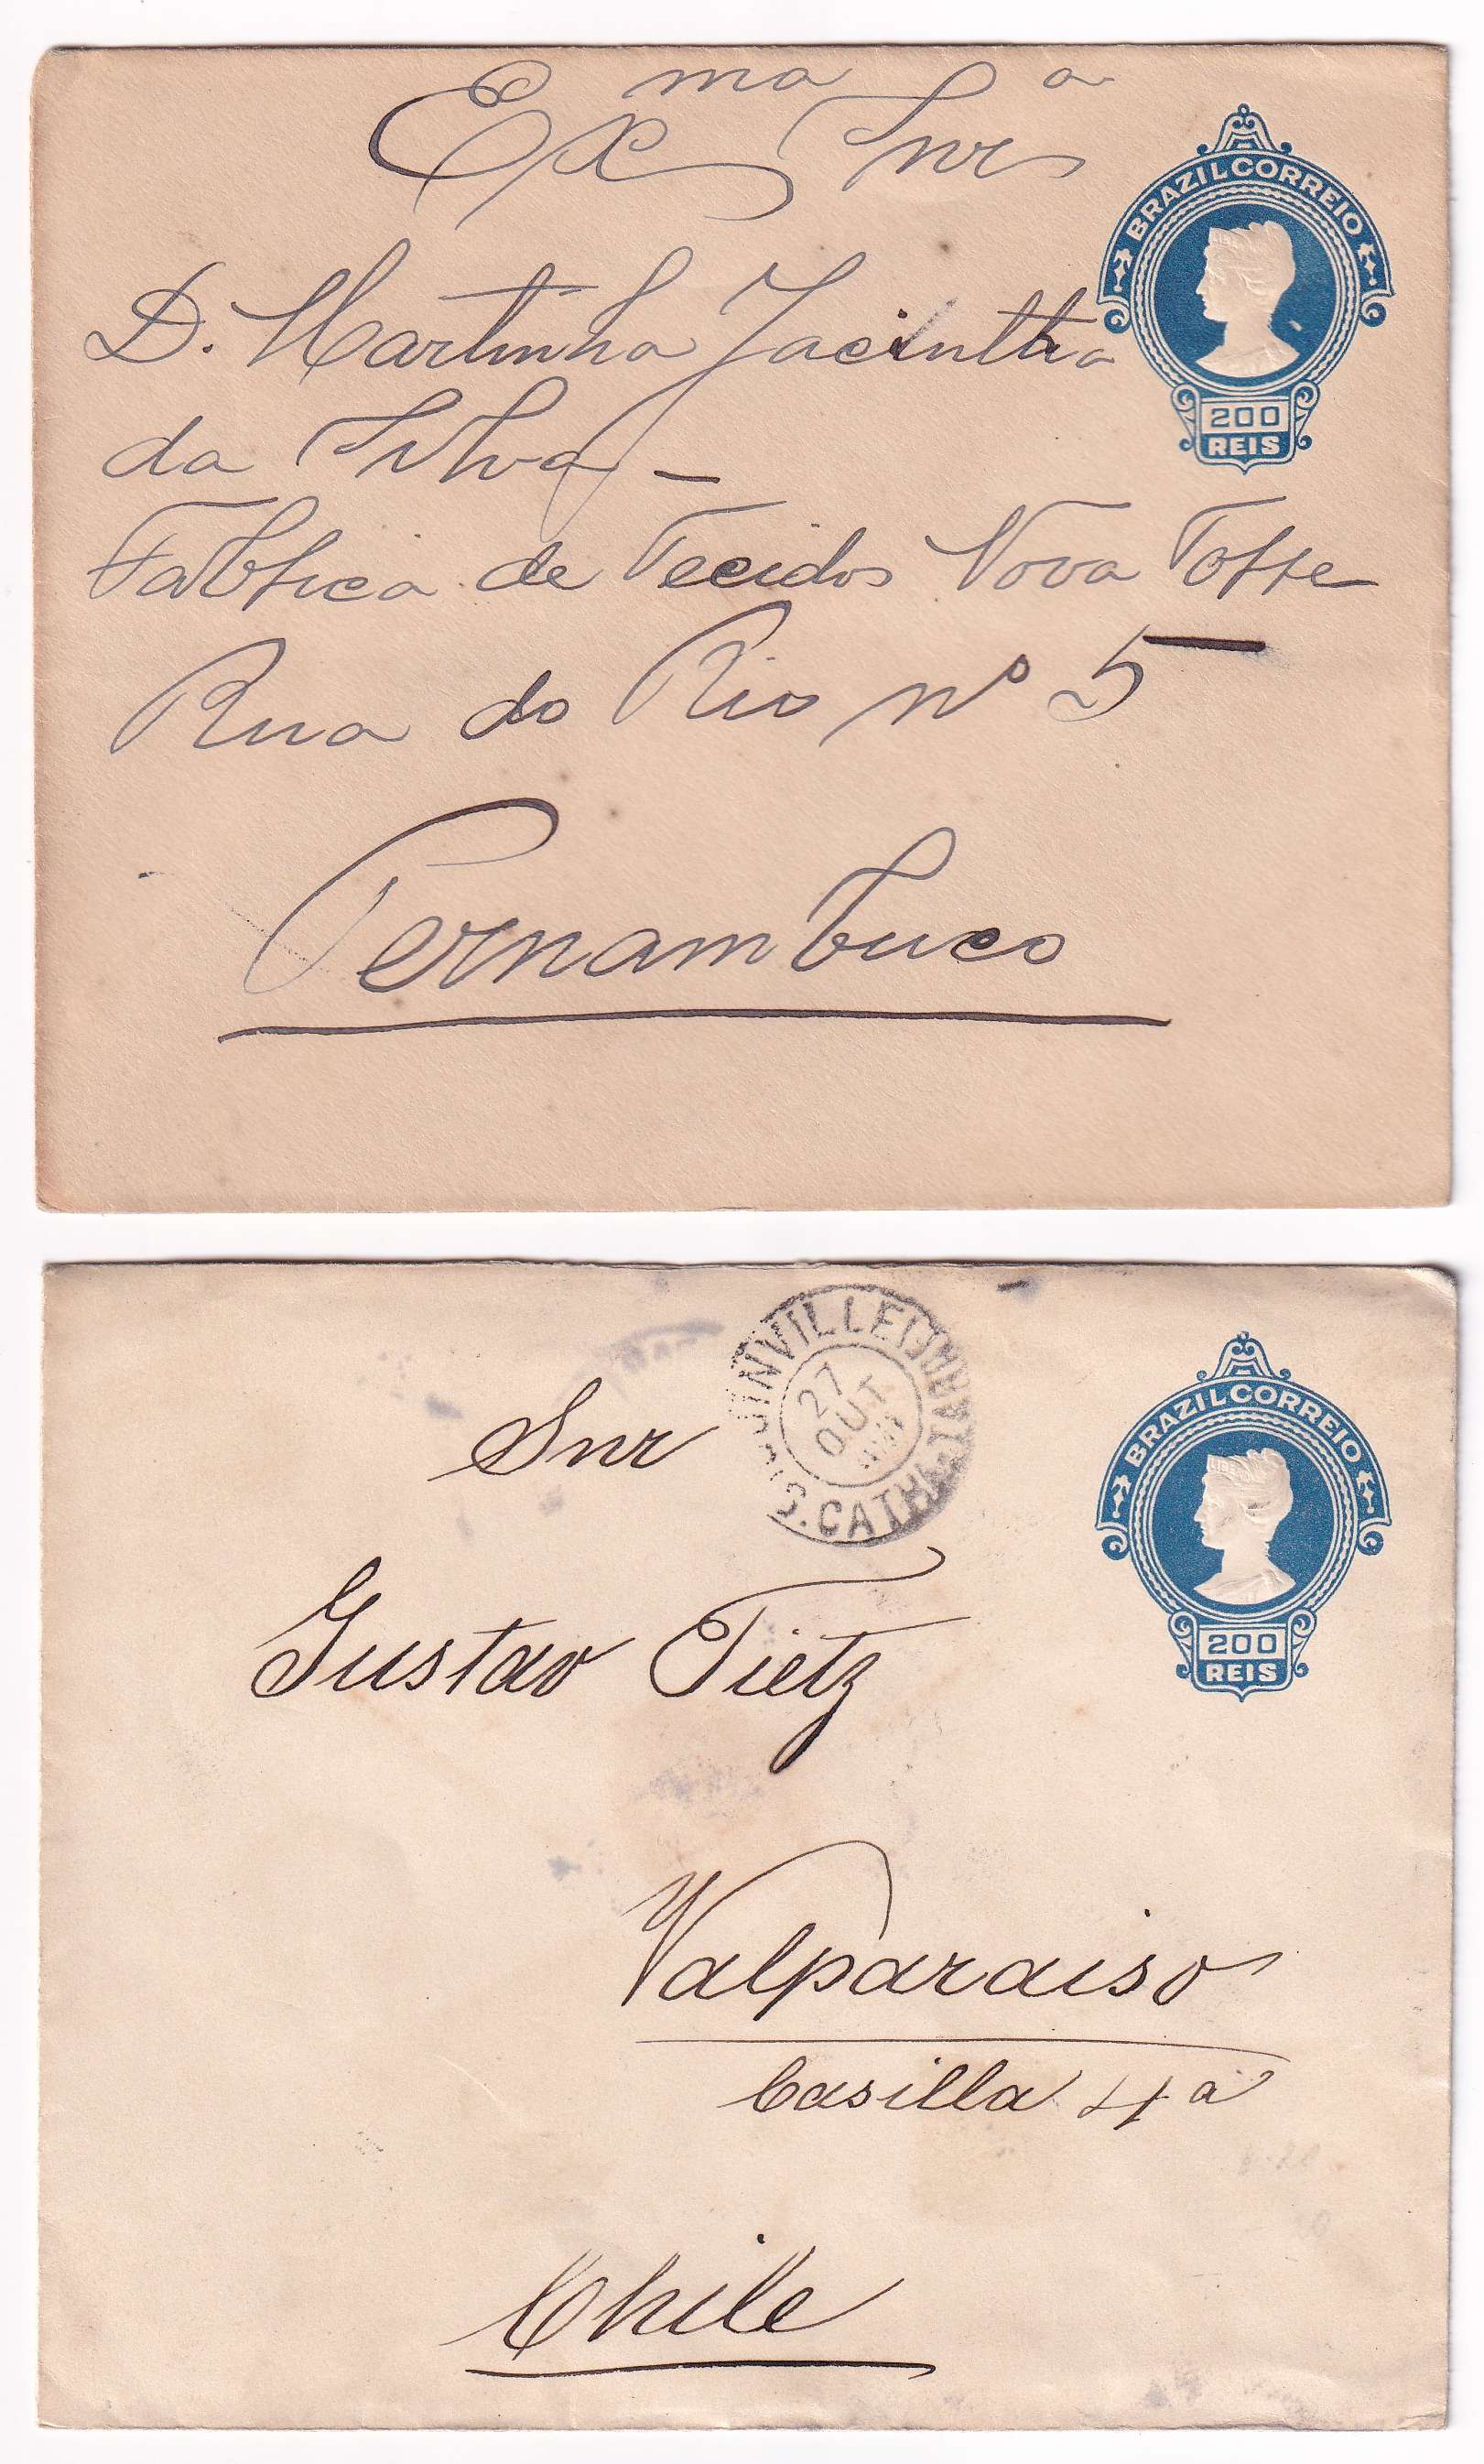 Ex^ma Snr^a
BRAZIL CORREIO
D. Martinha Jacintha
da Silva –
200
REIS
Fabbrica de Tecidos Nova Torre
Rua do Rio nº 5
Pernambuco
JOINVILLE
27
OUT
S. CATHA
BRAZIL CORREIO
Snr
Gustav Tietz
200
REIS
Valparaiso
Casilla 4ª
Chile